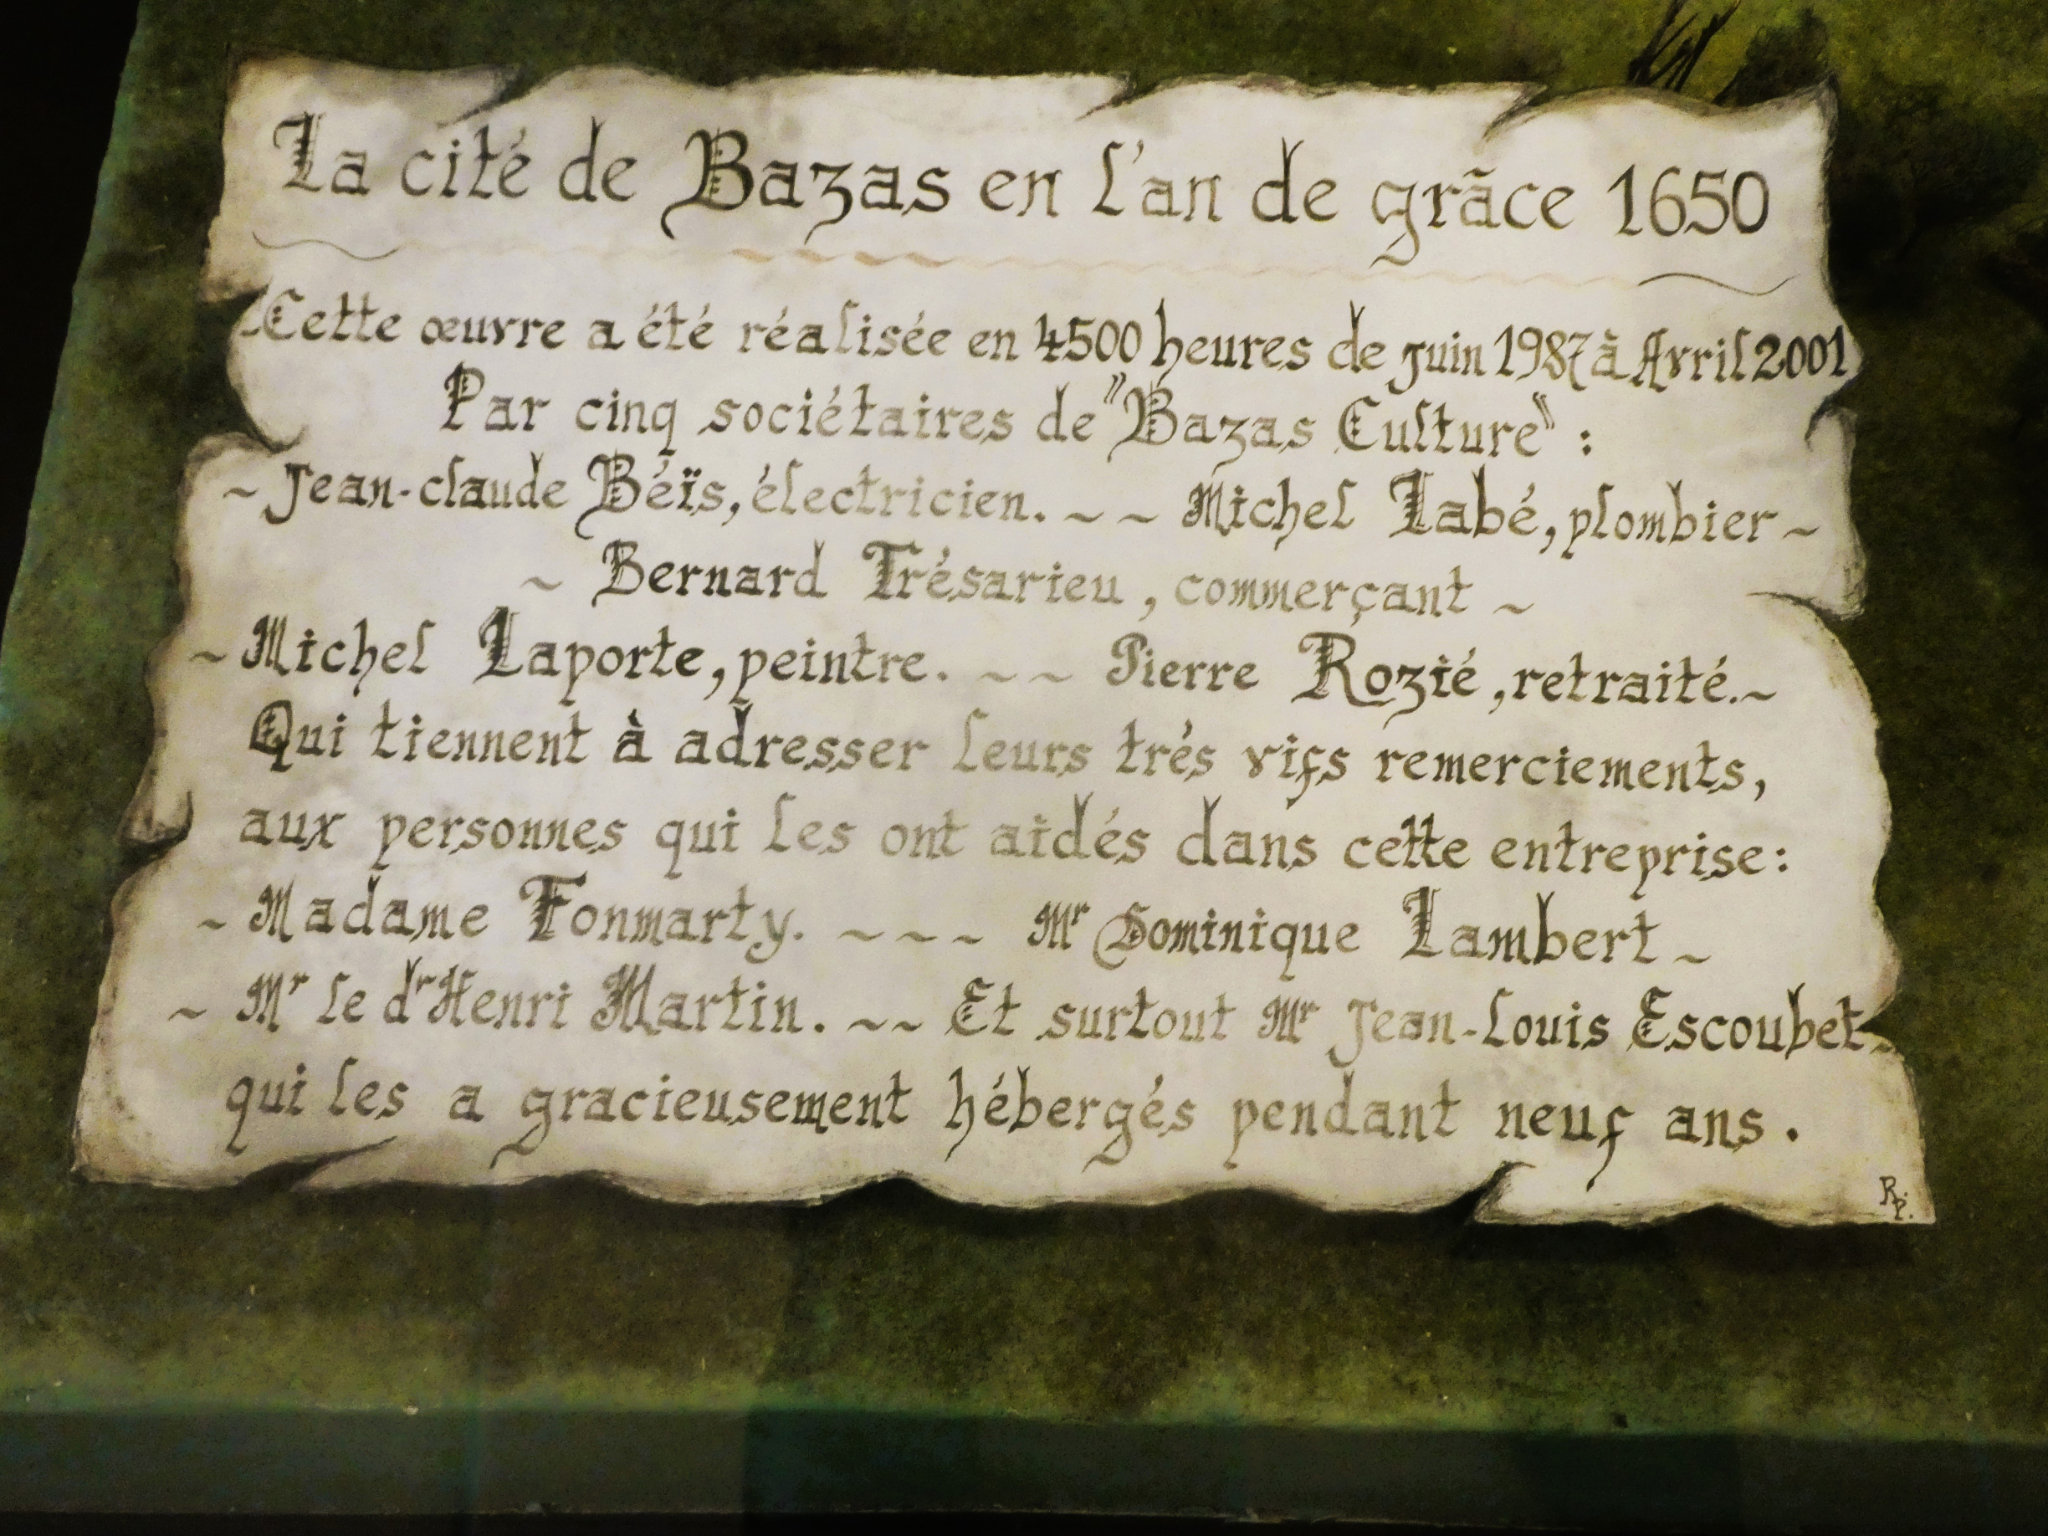 La cité de Bazas en l'an de grâce 1650
Cette œuvre a été réalisée en 4500 heures de juin 1987 à Avril 2001
Par cinq sociétaires de "Bazas Culture" :
~ Jean-claude Béïs, électricien. ~ ~ Michel Labé, plombier ~
~ Bernard Trésarieu, commerçant ~
~ Michel Laporte, peintre. ~ ~ Pierre Rozié, retraité. ~
Qui tiennent à adresser leurs trés vifs remerciements,
aux personnes qui les ont aidés dans cette entreprise:
~ Madame Fonmarty. ~ ~ ~ Mr Dominique Lambert ~
~ Mr le dr Henri Martin. ~ ~ Et surtout Mr Jean-Louis Escoubet ~
qui les a gracieusement hébergés pendant neuf ans.
R.P.